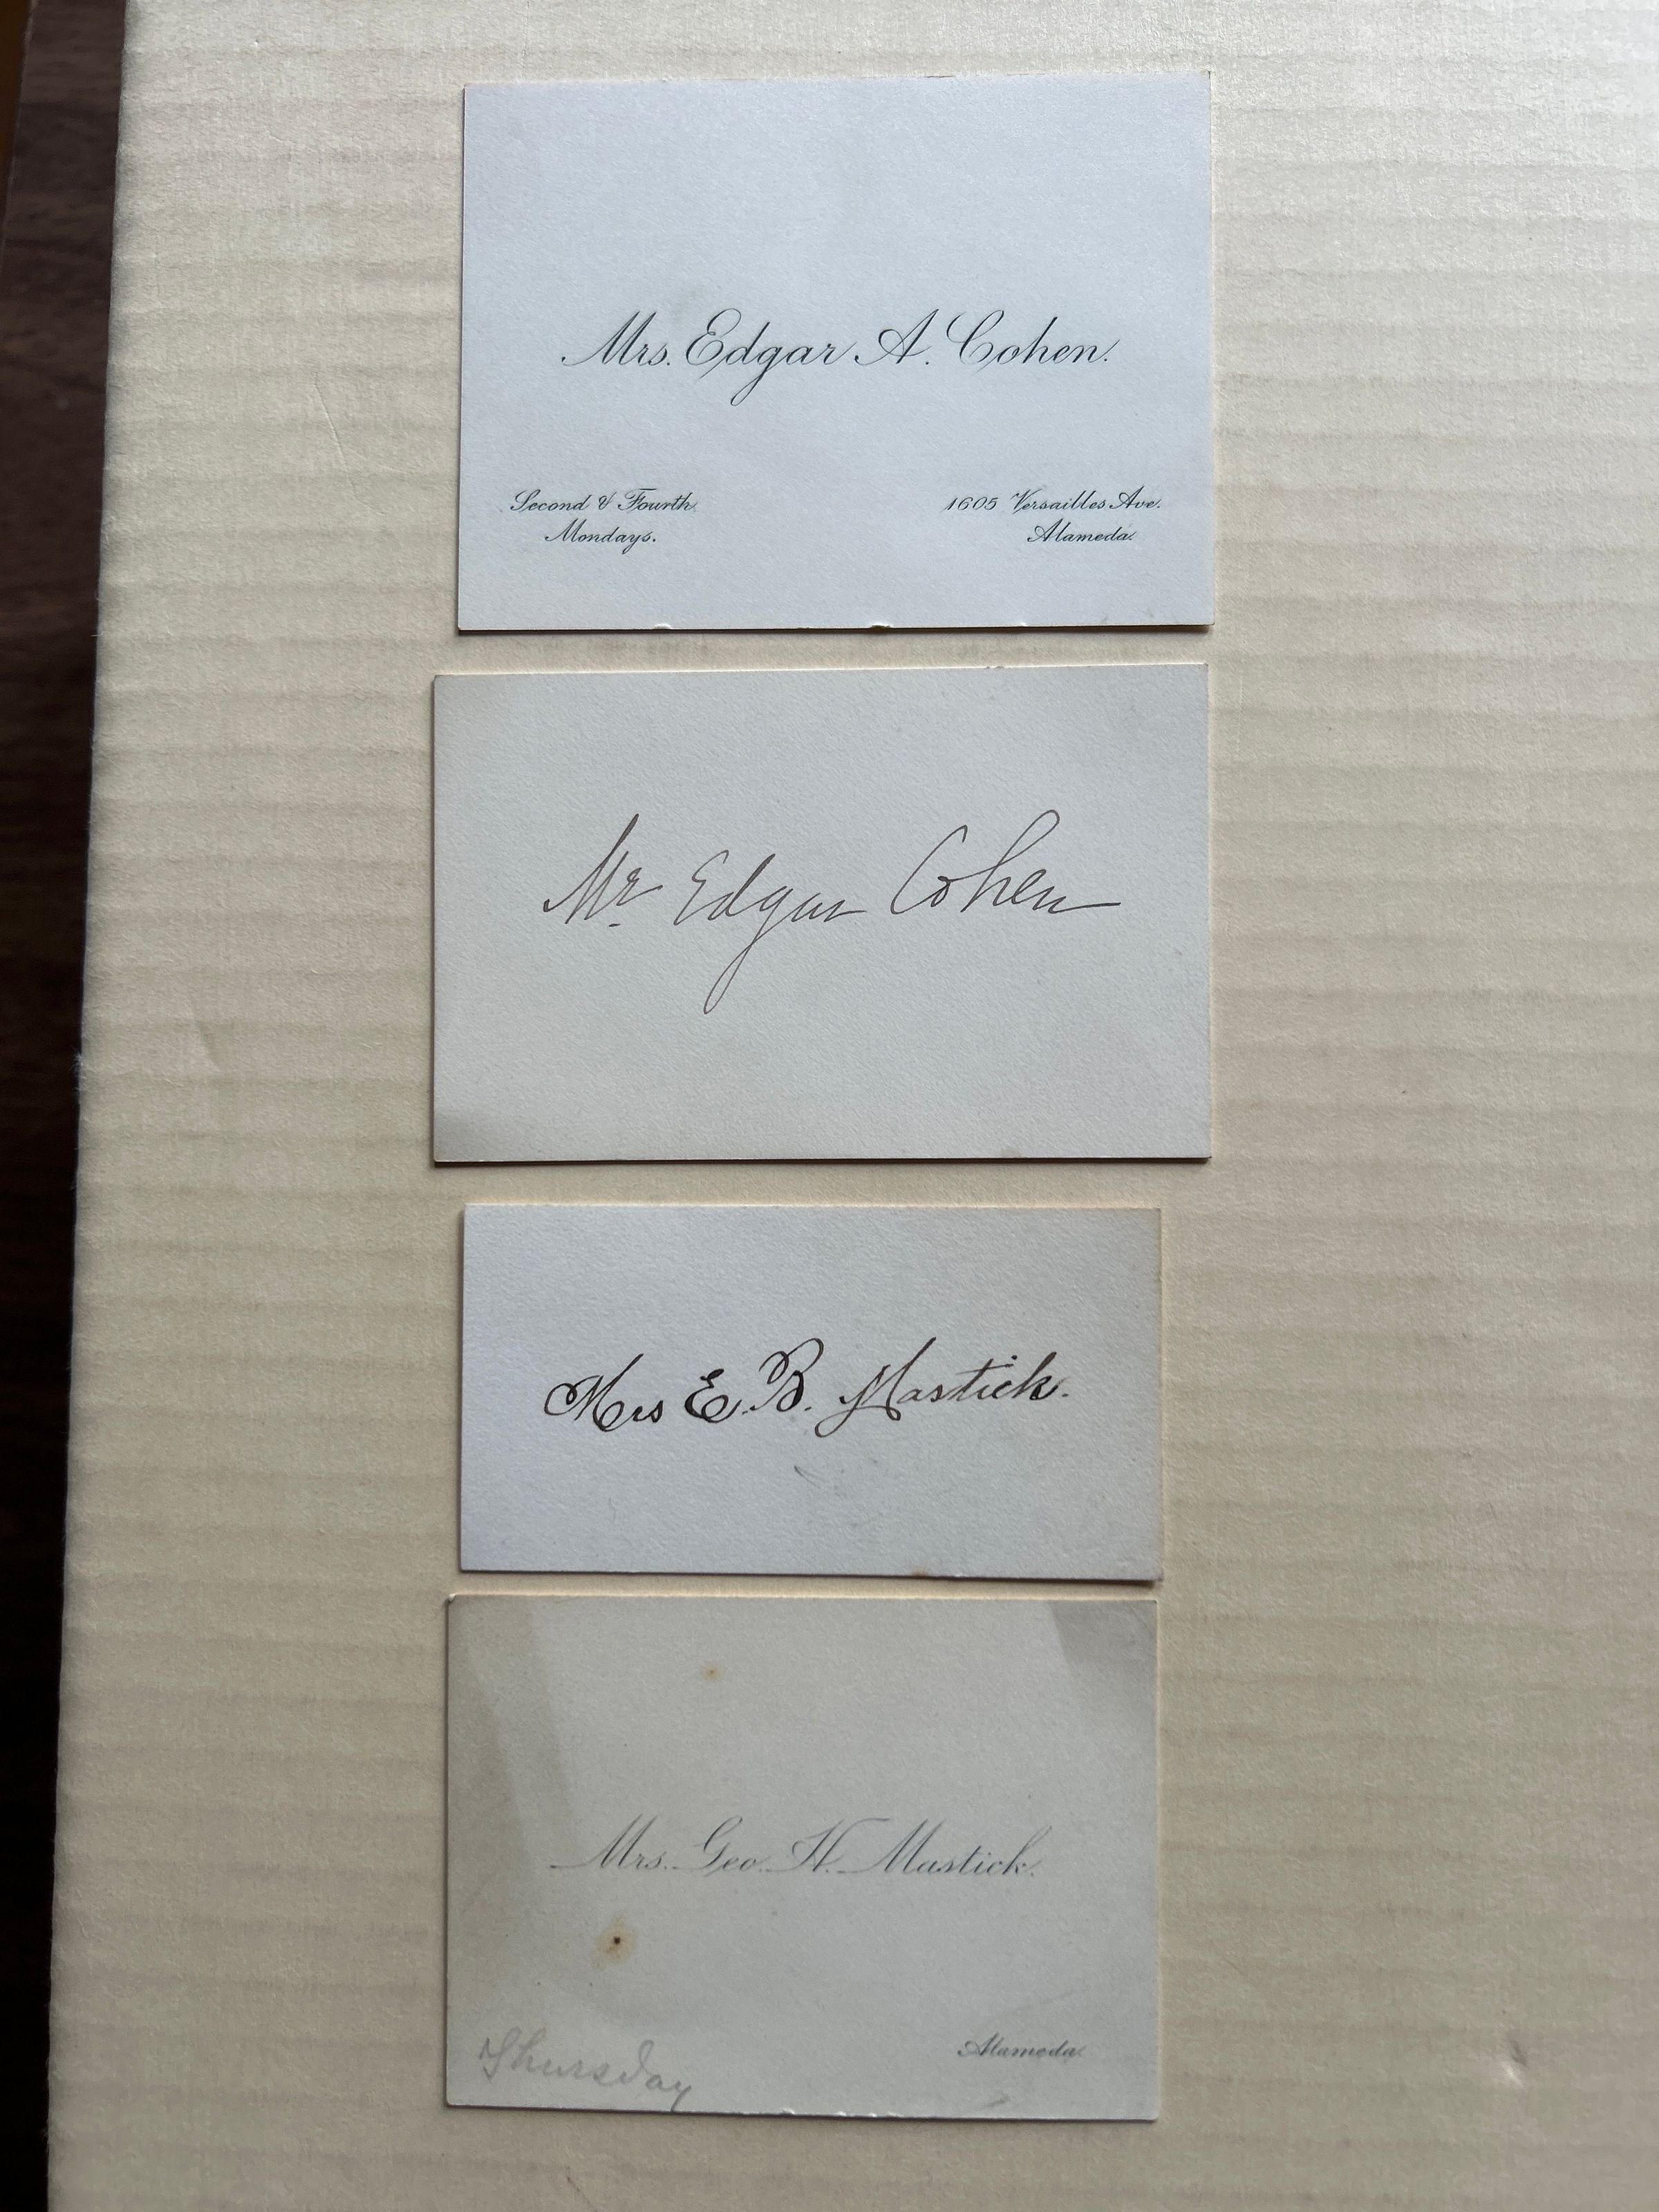 Mrs. Edgar A. Cohen.
Second & Fourth
Mondays.
1605 Versailles Ave.
Alameda.
Mr. Edgar Cohen
Mrs E. B. Mastick.
Mrs. Geo. H. Mastick.
Thursday
Alameda.